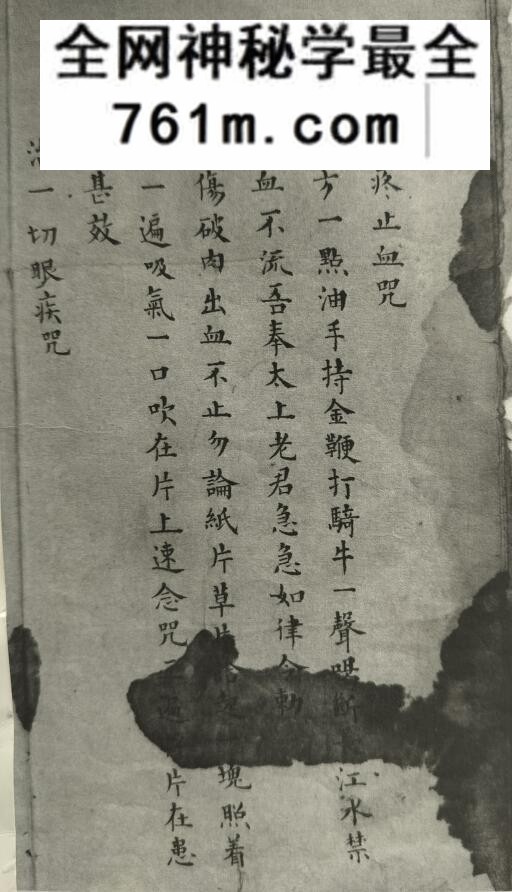 全网神秘学最全
761m.com
疼止血咒
方一點油手持金鞭打騎牛一聲喝斷江水禁
血不流吾奉太上老君急急如律令勅
傷破肉出血不止勿論紙片草片拾起一塊照着
一遍吸氣一口吹在片上速念咒遍片在患
甚效
治一切眼疾咒